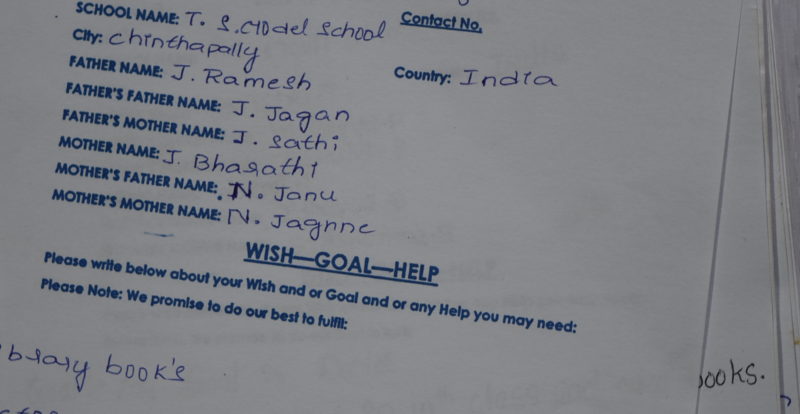 SCHOOL NAME: T. S. Model School Contact No.
City: Chinthapally
FATHER NAME: J. Ramesh Country: India
FATHER'S FATHER NAME: J. Jagan
FATHER'S MOTHER NAME: J. Sathi
MOTHER NAME: J. Bharathi
MOTHER'S FATHER NAME: N. Janu
MOTHER'S MOTHER NAME: N. Jagnne
WISH—GOAL—HELP
Please write below about your Wish and or Goal and or any Help you may need:
Please Note: We promise to do our best to fulfil:
brary book's
ooks.